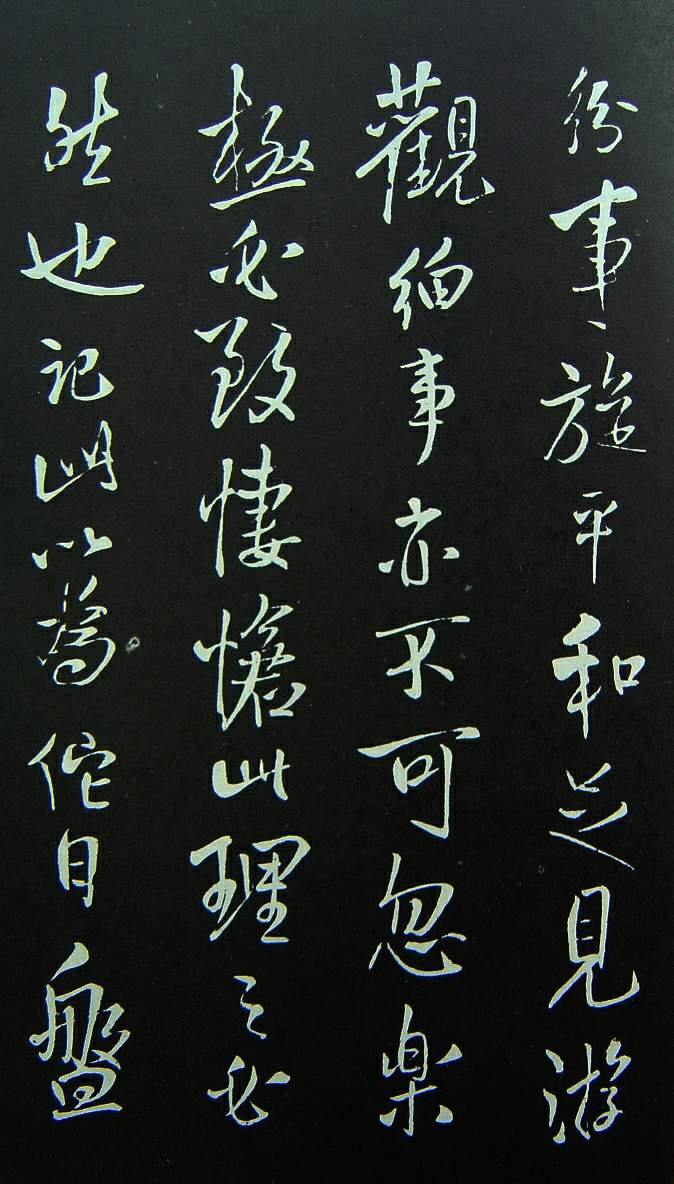 紛事旋平和足見游
觀細事亦不可忽樂
極必致悽憺此理之必
然也記此以為佗日盤